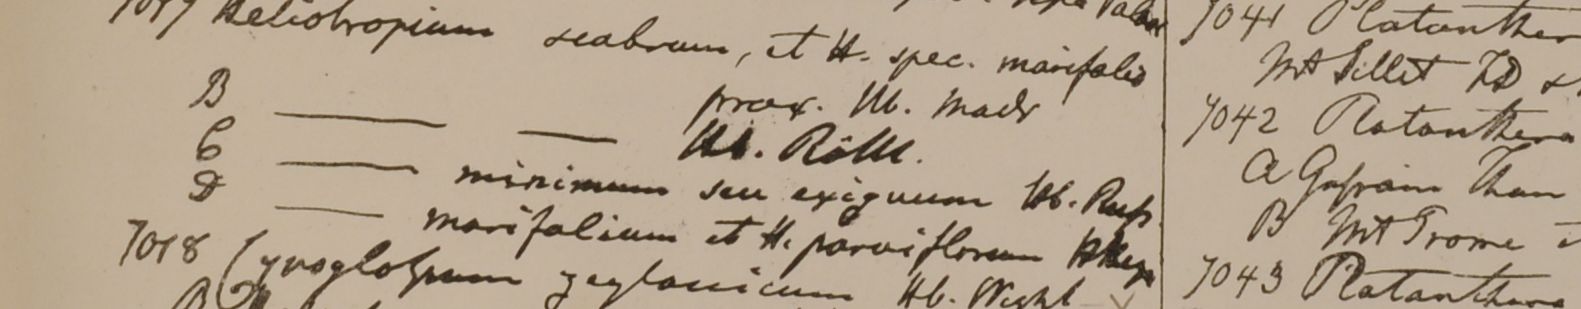 Heliotropium scabrum, et H. spec. marifolio
prox. Hb. Madr
B ——— ——— Hb. Röttl.
C ——— minimum seu exiguum Hb. Russ.
D ——— marifolium et H. parviflorum
7018 Cynoglossum zeylanicum Hb. Wight
B
7041 Platanther
Mt Sillet FD &
7042 Platanthera
A
B Mt Prome
7043 Platanthera